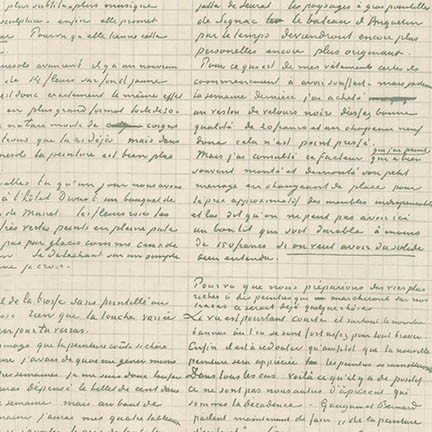 plus subtil – plus musique
sculpture. enfin elle promet
Pourvu qu'elle tienne cette
avancent il y a un nouveau
de 14 fleurs sur fond jaune
est donc exactement le même effet
en plus grand format toile de 30.
nature morte de coings
que tu as déjà mais dans
la peinture est bien plus
tu qu'un jour nous avons
à l'Hotel Drouot un bouquet de
de Manet. les fleurs roses les
très vertes peints en pleine pate
pas par glacis comme ceux de
Se détachant sur un simple
je crois.
de la brosse sans pointillé ou
rien que la touche variée
un jour tu verras.
dommage que la peinture coûte si chère
j'avais de quoi me gêner moins
semaines je me suis donc laissé
aurai dépensé le billet de cent dans
semaine mais au bout de
semaine j'aurai mes quatre tableaux
de Seurat les paysages à gros pointillé
de Signac le bateau d'Anquetin
par le temps deviendront encore plus
personelles encore plus originaux.
Pour ce qui est de mes vêtements certes ils
commençaient à avoir souffert – mais juste
la semaine dernière j'ai acheté
un veston de velours noir d'assez bonne
qualité de 20 francs et un chapeau neuf
donc cela n'est point pressé.
Mais j'ai consulté ce facteur que j'ai peint
qui a bien
souvent monté et démonté son petit
ménage en changeant de place pour
le prix approximatif des meubles indispensables
et lui dit qu'on ne peut pas avoir ici
un bon lit qui soit durable à moins
de 150 francs si on veut avoir du solide
bien entendu.
Pourvu que nous préparions des vies plus
riches à des peintres qui marcheront sur nos
traces ce serait déjà quelque chose.
La vie est pourtant courte et surtout le nombre
d'années où l'on se sent fort assez pour tout braver
Enfin il est à redouter qu'aussitôt que la nouvelle
peinture sera appréciée les peintres se ramolliront.
Dans tous les cas voilà ce qu'il y a de positif
ce ne sont pas nous autres d'à présent qui
sommes la décadence. Gauguin et Bernard
parlent maintenant de faire „de la peinture